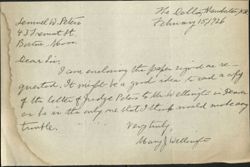 The Dells, Henderson, N.C.
February 15, 1926
Samuel W. Peters
43 Tremont St.
Boston, Mass.
Dear Sir,
I am enclosing the paper signed as re-
quested. It might be a good idea to send a copy
of the letter of Judge Peters to Mr. Wellington in
as he is the only one that I think would make any
trouble.
Very truly,
Mary J. Wellington